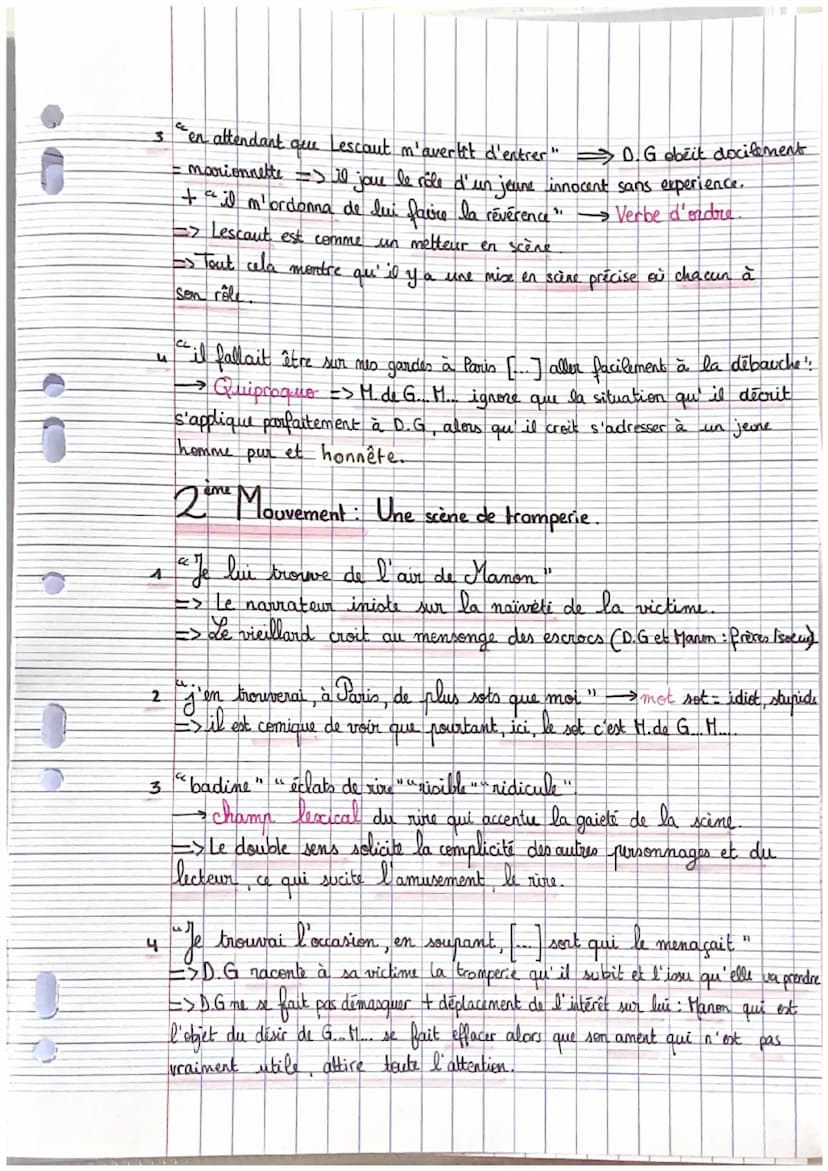 3 "en attendant que Lescaut m'avertît d'entrer" => D.G obéit docilement
= marionnette => il joue le rôle d'un jeune innocent sans experience.
+ "il m'ordonna de lui faire la révérence" → Verbe d'ordre.
=> Lescaut est comme un metteur en scène
=> Tout cela montre qu'il y a une mise en scène précise où chacun à
son rôle.
4 "il fallait être sur mes gardes à Paris [...] aller facilement à la débauche".
→ Quiproquo => M. de G... M... ignore que la situation qu'il décrit
s'applique parfaitement à D.G, alors qu'il croit s'adresser à un jeune
homme pur et honnête.
2ème Mouvement : Une scène de tromperie.
1 "Je lui trouve de l'air de Manon"
=> Le narrateur iniste sur la naïveté de la victime.
=> Le vieillard croit au mensonge des escrocs (D.G et Manon : frères/soeur)
2 "j'en trouverai, à Paris, de plus sots que moi" → mot sot = idiot, stupide
=> il est comique de voir que pourtant, ici, le sot c'est M. de G... M....
3 "badine" "éclats de rire" "risible" "ridicule"
→ champ lexical du rire qui accentue la gaieté de la scène.
=> Le double sens solicite la complicité des autres personnages et du
lecteur, ce qui sucite l'amusement, le rire.
4 "Je trouvai l'occasion, en soupant, [...] sort qui le menaçait"
=> D.G raconte à sa victime la tromperie qu'il subit et l'issu qu'elle va prendre
=> D.G ne se fait pas démasquer + déplacement de l'intérêt sur lui : Manon qui est
l'objet du désir de G... M... se fait effacer alors que son ament qui n'est pas
vraiment utile, attire toute l'attention.